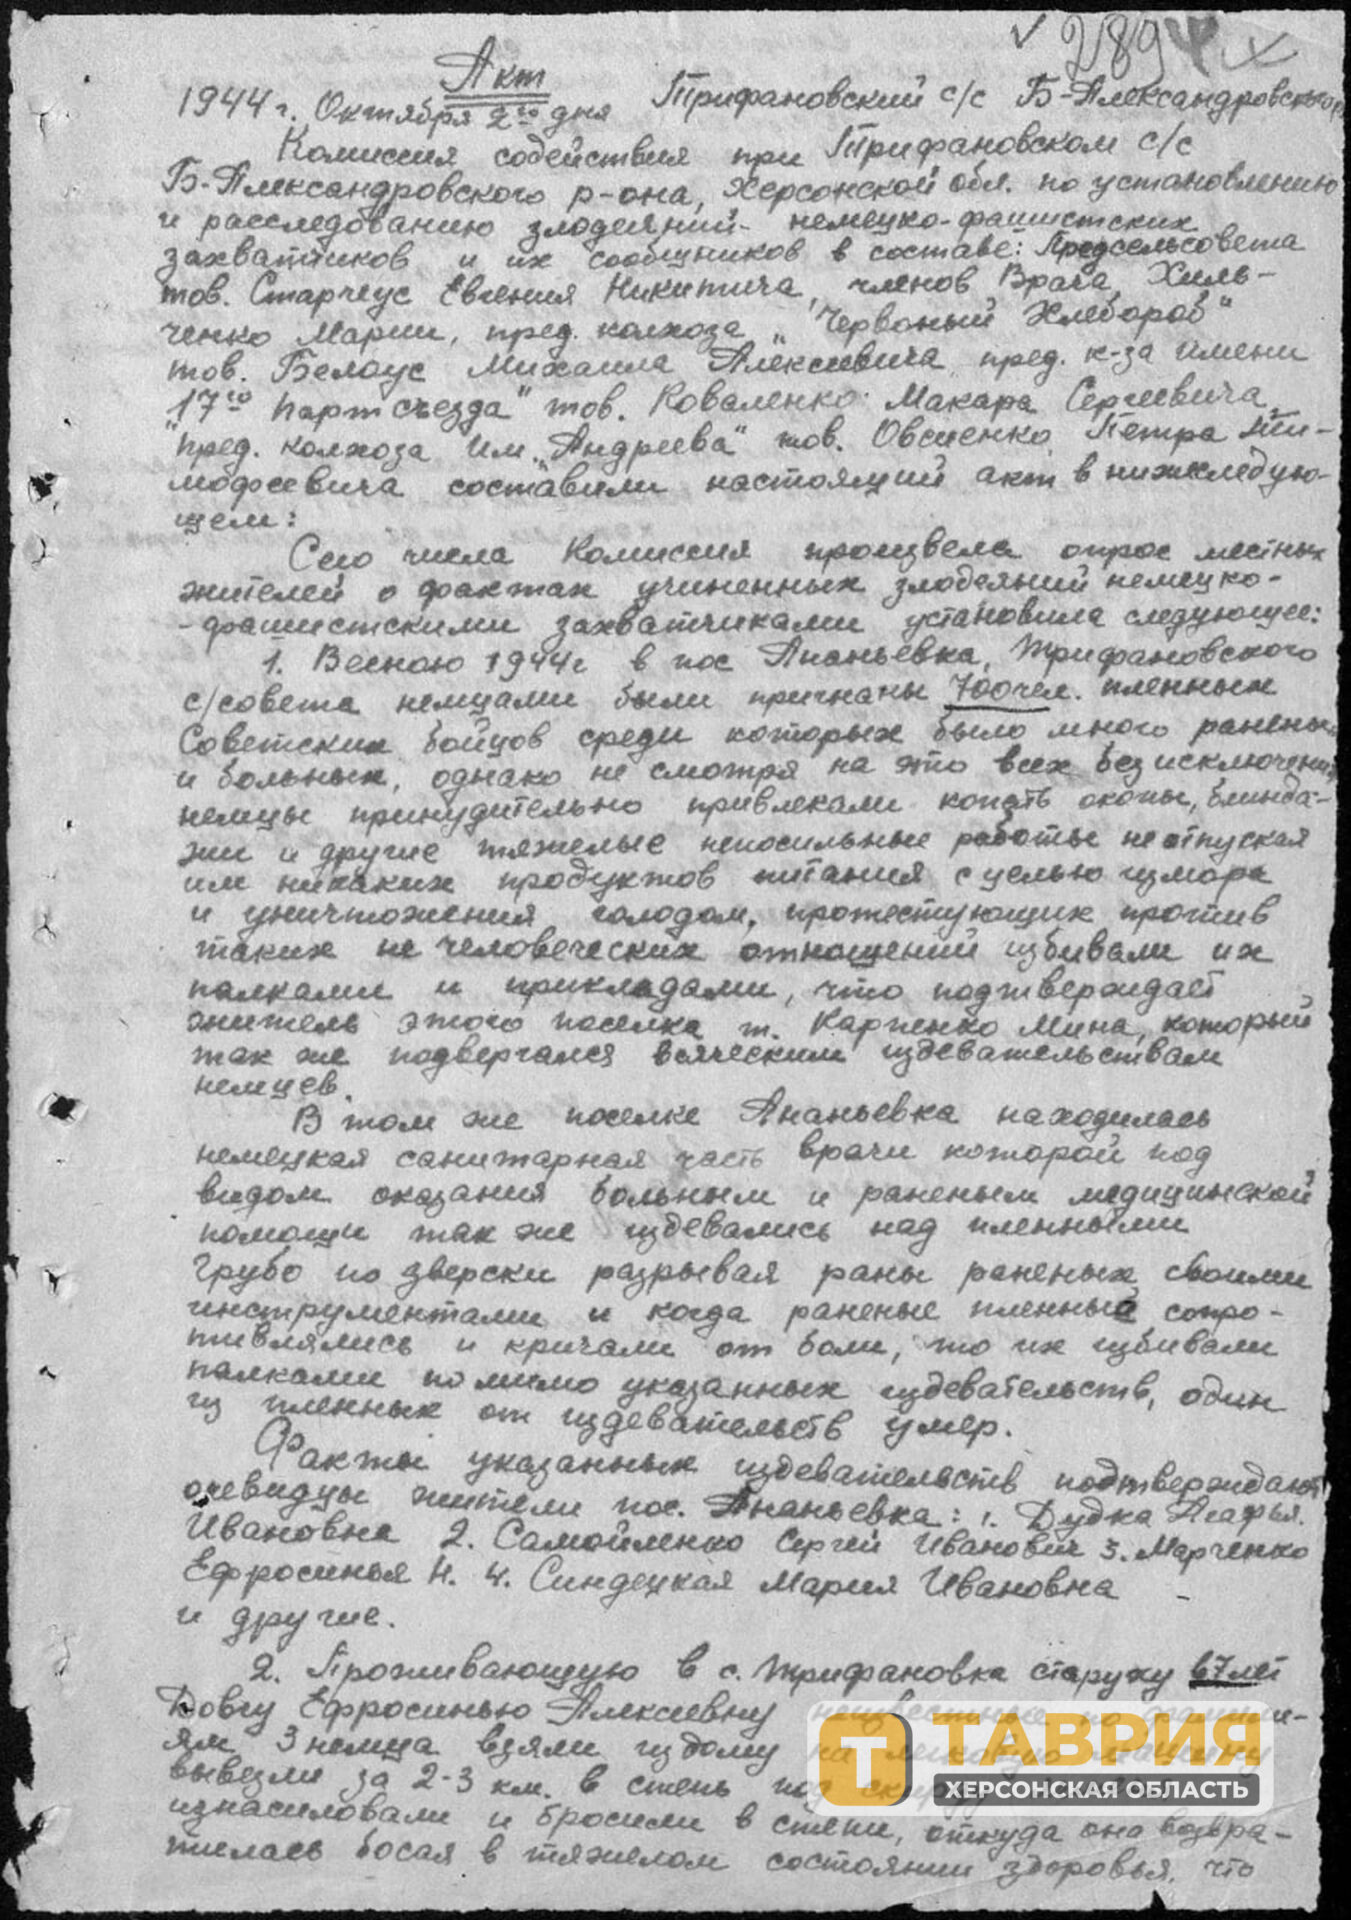 289
Акт
1944 г. Октября 2го дня Трифановский с/с Б-Александровского р
Комиссия содействия при Трифановском с/с
Б-Александровского р-она, Херсонской обл. по установлению
и расследованию злодеяний немецко-фашистских
захватчиков и их сообщников в составе: Предсельсовета
тов. Старчеус Евгения Никитича, членов Врача Хиль-
ченко Марии, пред. колхоза "Червоный Хлебороб"
тов. Белоус Михаила Алексеевича, пред. к-за имени
"17го партсъезда" тов. Коваленко Макара Сергеевича,
пред. колхоза им. "Андреева" тов. Овсиенко Петра Ти-
мофеевича составили настоящий акт в нижеследую-
щем:
Сего числа Комиссия произвела опрос местных
жителей о фактах учиненных злодеяний немецко-
-фашистскими захватчиками установила следующее:
1. Весною 1944 г в пос Ананьевка, Трифановского
с/совета немцами были пригнаны 700 чел. пленных
Советских бойцов среди которых было много раненых
и больных, однако не смотря на это всех без исключения
немцы принудительно привлекали копать окопы, блинда-
жи и другие тяжелые непосильные работы не отпуская
им никаких продуктов питания с целью измора
и уничтожения голодом, протестующих против
таких не человеческих отношений избивали их
палками и прикладами, что подтверждает
житель этого поселка т. Карпенко Мина, который
так же подвергался всяческим издевательствам
немцев.
В том же поселке Ананьевка находилась
немецкая санитарная часть врачи которой под
видом оказания больным и раненым медицинской
помощи так же издевались над пленными
грубо по зверски разрывая раны раненых своими
инструментами и когда раненые пленные сопро-
тивлялись и кричали от боли, то их избивали
палками помимо указанных издевательств, один
из пленных от издевательств умер.
Факты указанных издевательств подтверждают
очевидцы жители пос. Ананьевка: 1. Дудка Агафья
Ивановна 2. Самойленко Сергей Иванович 3. Марченко
Ефросинья Н. 4. Синдецкая Мария Ивановна
и другие.
2. Проживающую в с. Трифановка старуху 67 лет
Довгу Ефросинью Алексеевну неизвестные по фамили-
ям 3 немца взяли из дому на легковую машину
вывезли за 2-3 км. в степь под скирду
изнасиловали и бросили в степи, откуда она возвра-
тилась босая в тяжелом состоянии здоровья, что
ТАВРИЯ
ХЕРСОНСКАЯ ОБЛАСТЬ